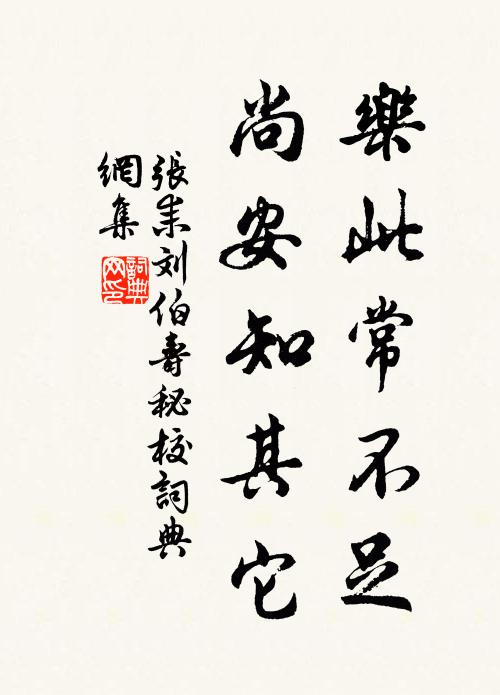 樂此常不足
尚安知其它
張耒刘伯壽秘校詞典
網集
詞典網印